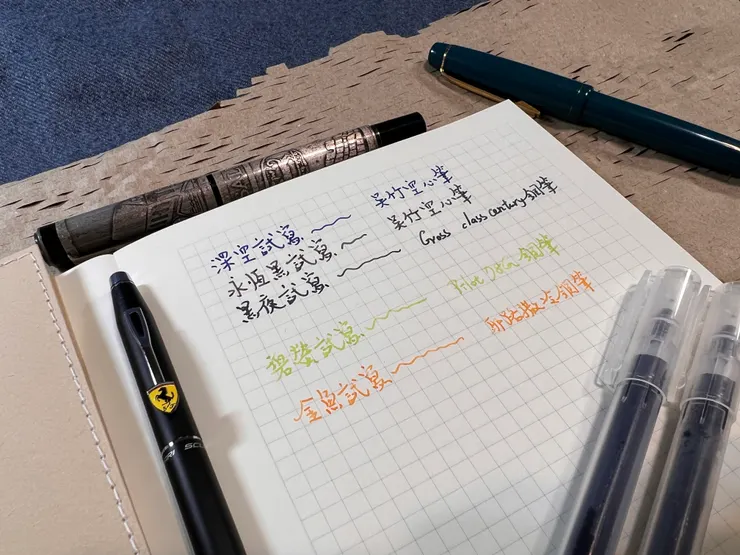 深空試寫 吳竹空心筆
永恆黑試寫 吳竹空心筆
黑夜試寫 Cross class century鋼筆
碧螢試寫 Pilot 鋼筆
金魚試寫 鋼筆